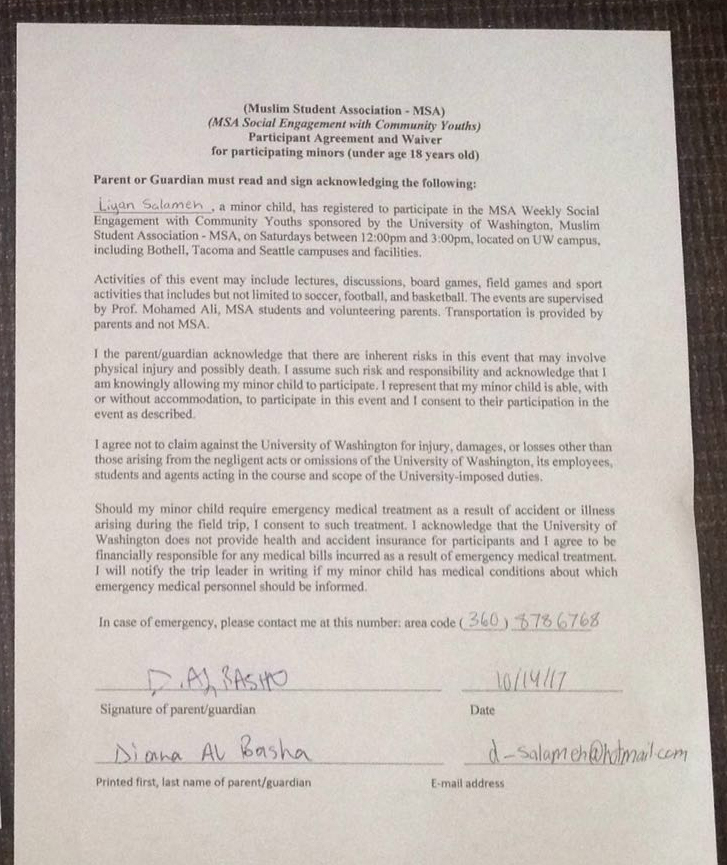 (Muslim Student Association - MSA)
(MSA Social Engagement with Community Youths)
Participant Agreement and Waiver
for participating minors (under age 18 years old)
Parent or Guardian must read and sign acknowledging the following:
Liyan Salameh, a minor child, has registered to participate in the MSA Weekly Social
Engagement with Community Youths sponsored by the University of Washington, Muslim
Student Association - MSA, on Saturdays between 12:00pm and 3:00pm, located on UW campus,
including Bothell, Tacoma and Seattle campuses and facilities.
Activities of this event may include lectures, discussions, board games, field games and sport
activities that includes but not limited to soccer, football, and basketball. The events are supervised
by Prof. Mohamed Ali, MSA students and volunteering parents. Transportation is provided by
parents and not MSA.
I the parent/guardian acknowledge that there are inherent risks in this event that may involve
physical injury and possibly death. I assume such risk and responsibility and acknowledge that I
am knowingly allowing my minor child to participate. I represent that my minor child is able, with
or without accommodation, to participate in this event and I consent to their participation in the
event as described.
I agree not to claim against the University of Washington for injury, damages, or losses other than
those arising from the negligent acts or omissions of the University of Washington, its employees,
students and agents acting in the course and scope of the University-imposed duties.
Should my minor child require emergency medical treatment as a result of accident or illness
arising during the field trip, I consent to such treatment. I acknowledge that the University of
Washington does not provide health and accident insurance for participants and I agree to be
financially responsible for any medical bills incurred as a result of emergency medical treatment.
I will notify the trip leader in writing if my minor child has medical conditions about which
emergency medical personnel should be informed.
In case of emergency, please contact me at this number: area code (360) 8786768
D.Al BASHA 10/14/17
Signature of parent/guardian Date
Diana AL Basha d-salameh@hotmail.com
Printed first, last name of parent/guardian E-mail address